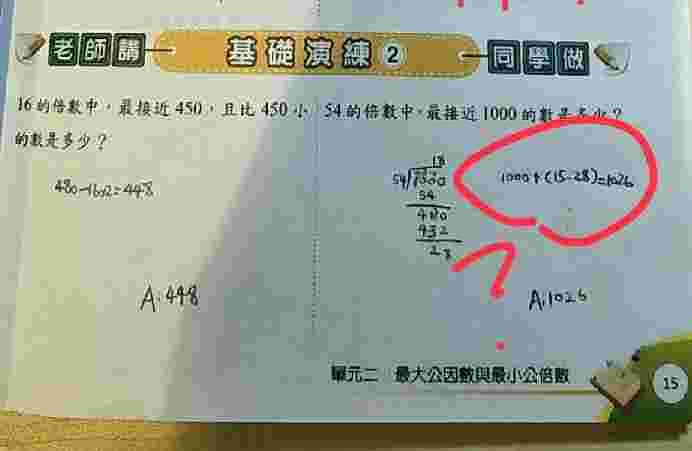 老師講
基礎演練②
同學做
16的倍數中，最接近450，且比450小
的數是多少？
480-16×2=448
A:448
54的倍數中，最接近1000的數是多少？
18
54√1000
54
460
432
28
1000+(15-28)=1026
?
A:1026
單元二 最大公因數與最小公倍數
15